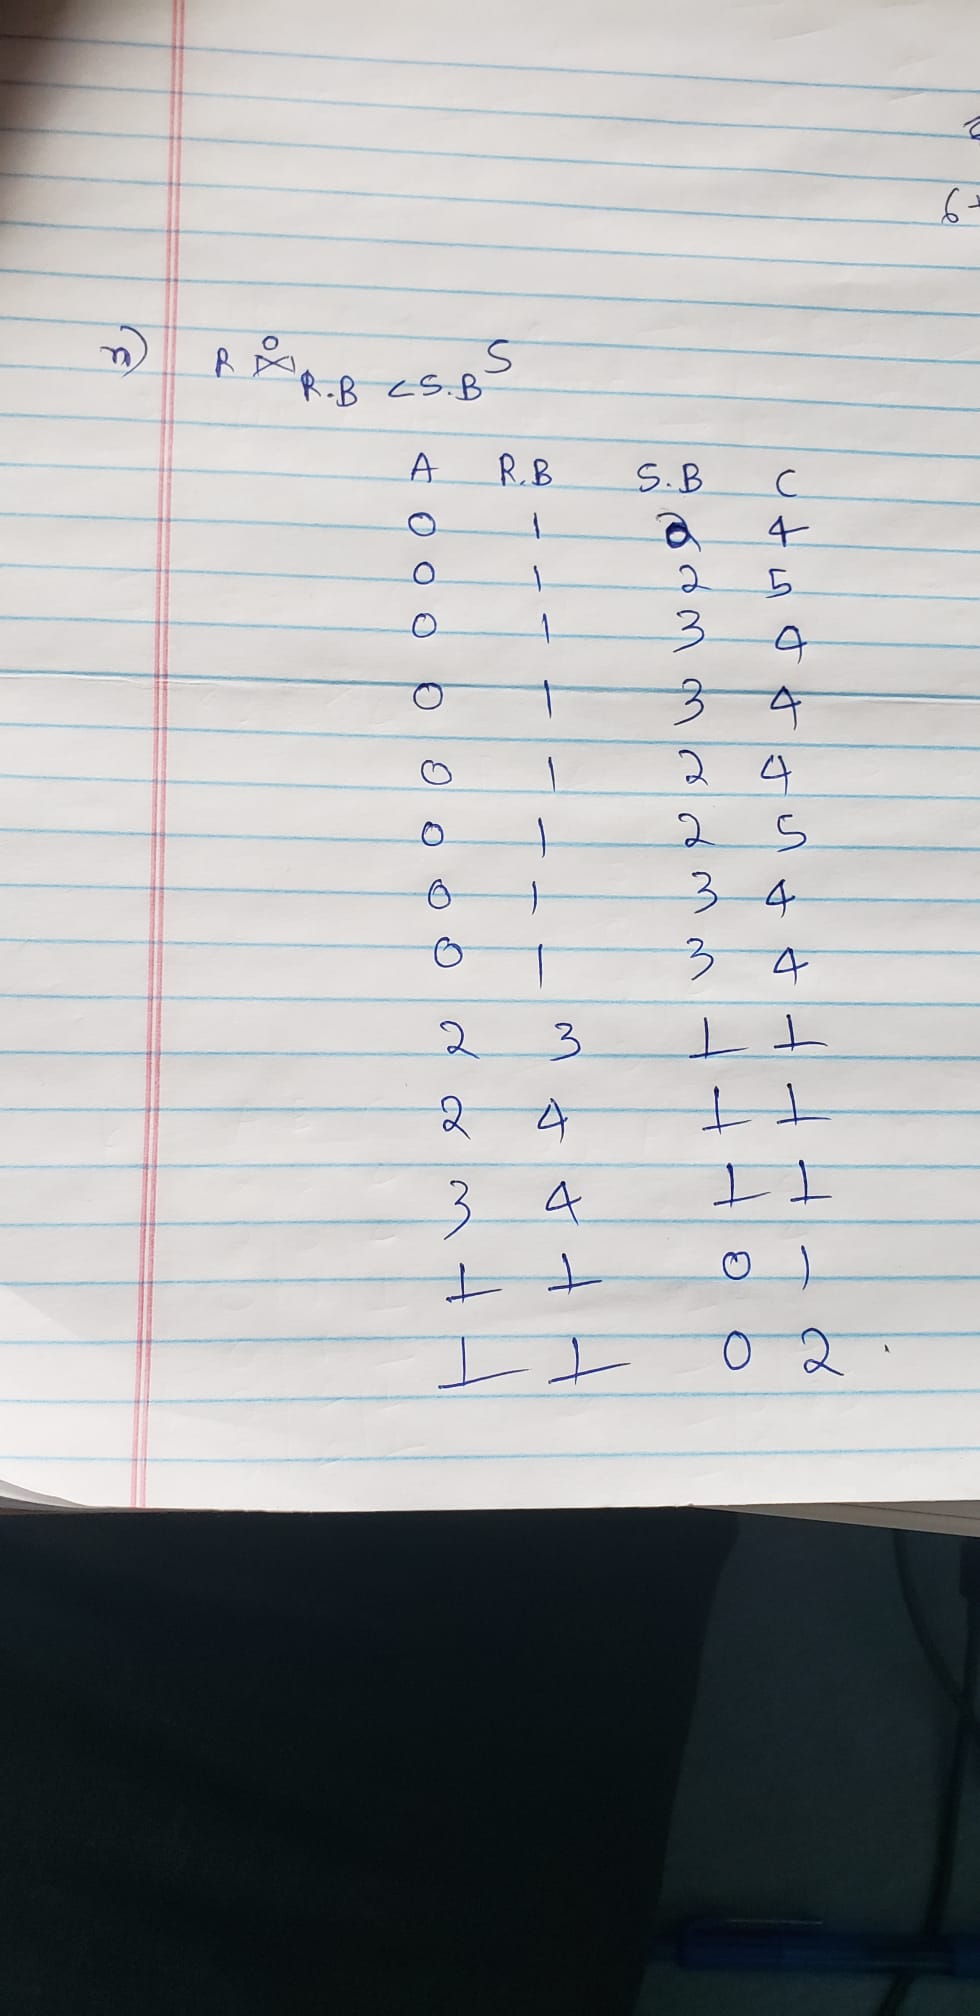 n) R ⋈° R.B < S.B S
A R.B S.B C
0 1 2 4
0 1 2 5
0 1 3 4
0 1 3 4
0 1 2 4
0 1 2 5
0 1 3 4
0 1 3 4
2 3 ⊥ ⊥
2 4 ⊥ ⊥
3 4 ⊥ ⊥
⊥ ⊥ 0 1
⊥ ⊥ 0 2